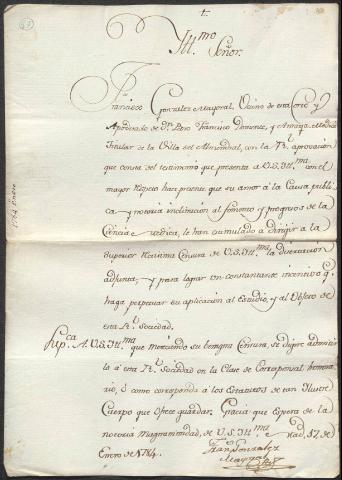 Ill.mo Señor.
Francisco Gonzalez Mayoral, Vecino de esta Corte y
Apoderado de Dn. Pedro Francisco Domente, y Medico
Titular de la Villa del con la Rl. aprovacion
que consta del testimonio que presenta a V.S. Ill.ma con el
mayor Respeto hace presente que su amor à la Causa publi
ca, y notoria inclinacion al fomento y progresos de la
Ciencia Medica, le han à dirigir a la
superior Censura de V.S. Ill.ma la disertacion
adjunta, y para lograr un constante incentivo q.
haga perpetuar su aplicacion al Estudio, y al Obseq. de
esta Rl. Sociedad.
Supca. A V.S. Ill.ma que mereciendo su benigna Censura, se digne admitir
le à esta Rl. Sociedad en la Clase de Corresponsal, honora
rio, ò como corresponda à los Estatutos de tan Ilustre
Cuerpo que ofrece guardar; Gracia que espera de la
notoria magnanimidad, de V.S. Ill.ma
Enero de 1784.
Fran. Gonzalez
Mayoral